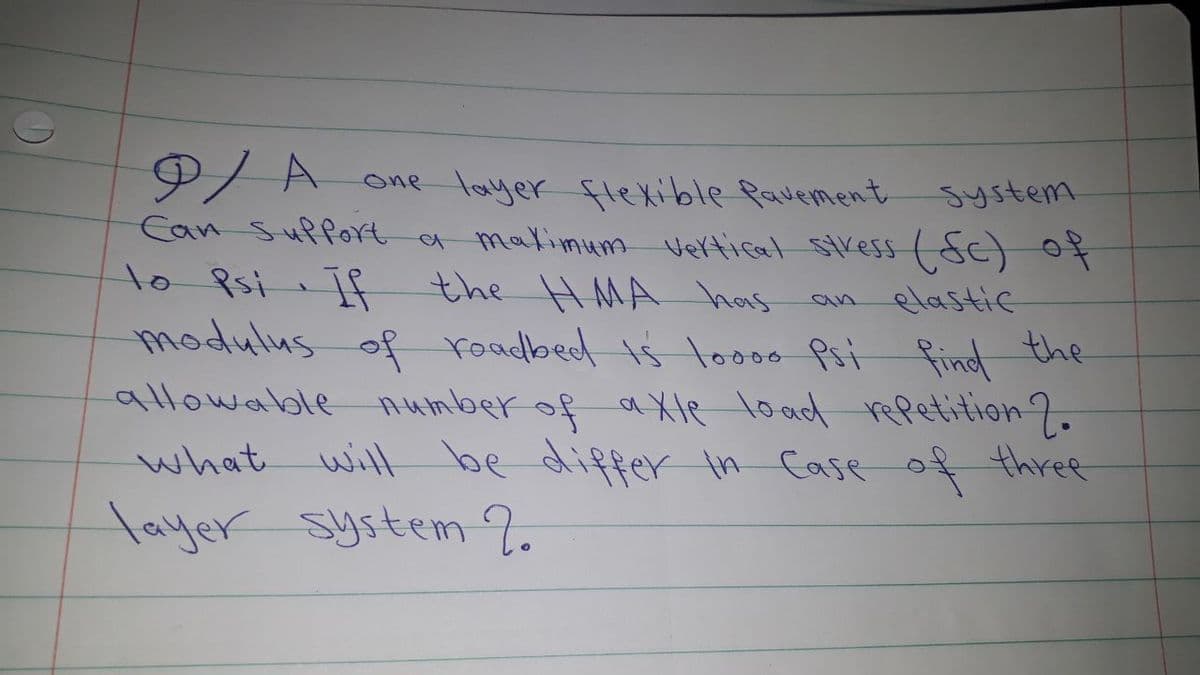 Q/ A one layer flexible Pavement system
Can support a maximum vertical stress (δc) of
10 Psi . If the HMA has an elastic
modulus of roadbed is 10000 Psi find the
allowable number of axle load repetition ?.
what will be differ in Case of three
layer system ?.